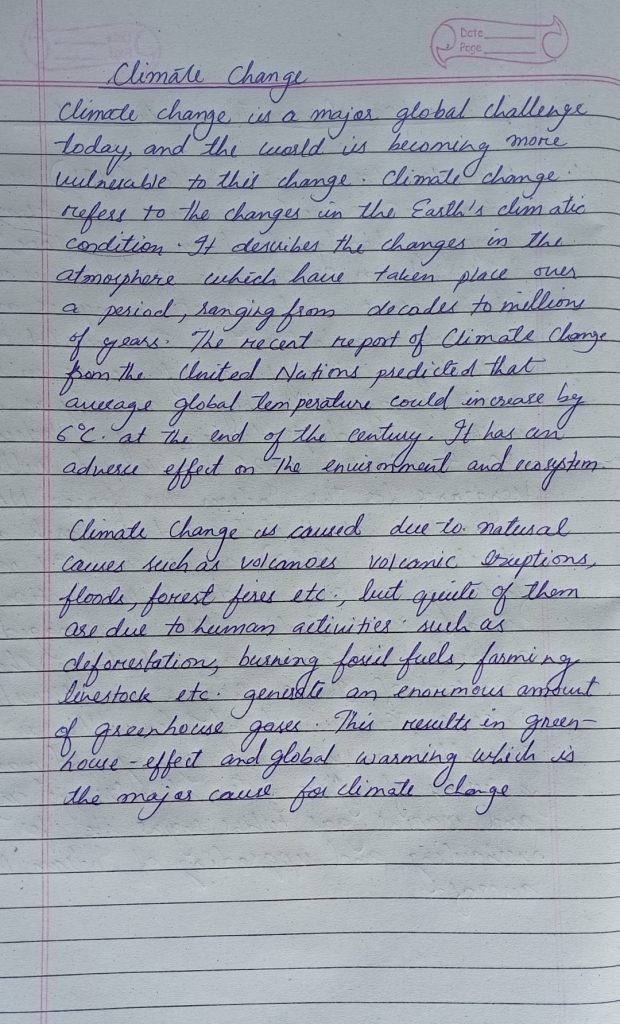 Date
Page
Climate Change
Climate change is a major global challenge
today, and the world is becoming more
vulnerable to this change. Climate change
refers to the changes in the Earth's climatic
condition. It describes the changes in the
atmosphere which have taken place over
a period, ranging from decades to millions
of years. The recent report of Climate Change
from the United Nations predicted that
average global temperature could increase by
6°C. at the end of the century. It has an
adverse effect on the environment and ecosystem.
Climate Change is caused due to natural
causes such as volcanoes volcanic eruptions,
floods, forest fires etc., but quite of them
are due to human activities such as
deforestation, burning fossil fuels, farming
livestock etc. generate an enormous amount
of greenhouse gases. This results in green-
house-effect and global warming which is
the major cause for climate change